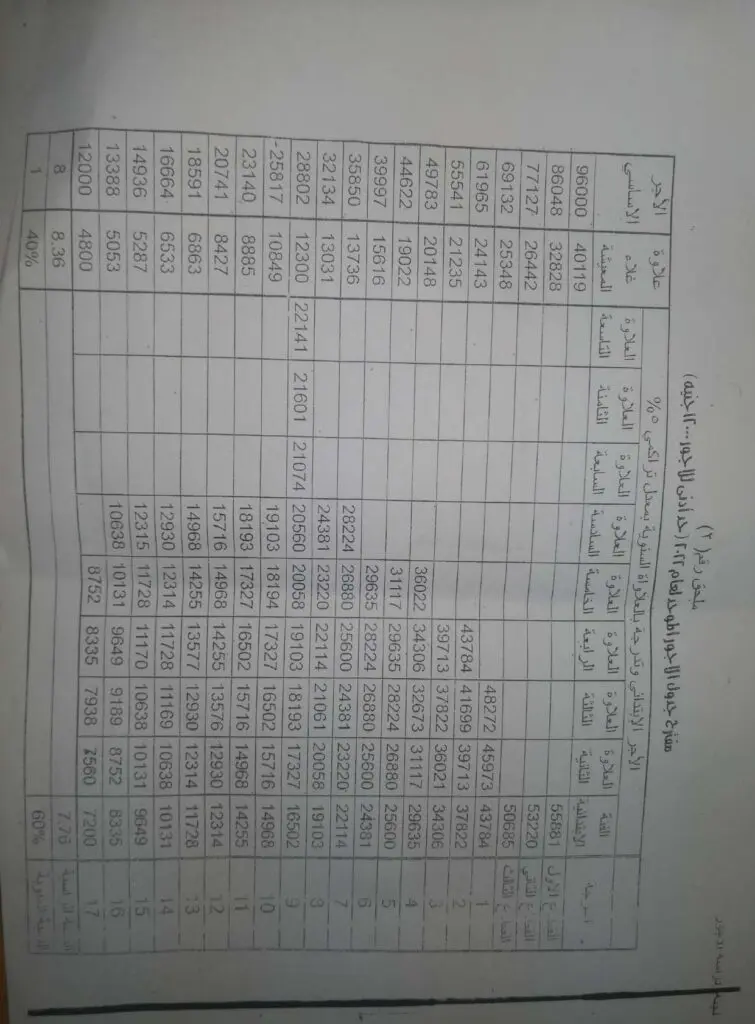 لجنة دراسة الاجور
ملحق رقم (٢)
مقترح جدول الاجور الموحد لعام ٢٠٢٢ (حد أدنى للاجور ١٢٠٠٠ جنيه)
الأجر الابتدائي وتدرجه بالعلاواة السنوية بمعدل تراكمي ٥%
الدرجة الفئة الابتدائية العلاوة الثانية العلاوة الثالثة العلاوة الرابعة العلاوة الخامسة العلاوة السادسة العلاوة السابعة العلاوة الثامنة العلاوة التاسعة علاوة غلاء المعيشة الأجر الاساسي
القطاع الأول 55881 40119 96000
القطاع الثاني 53220 32828 86048
القطاع الثالث 50685 26442 77127
1 43784 45973 48272 25348 69132
2 37822 39713 41699 43784 24143 61965
3 34306 36021 37822 39713 21235 55541
4 29635 31117 32673 34306 36022 20148 49783
5 25600 26880 28224 29635 31117 19022 44622
6 24381 25600 26880 28224 29635 15616 39997
7 22114 23220 24381 25600 26880 28224 13736 35850
8 19103 20058 21061 22114 23220 24381 13031 32134
9 16502 17327 18193 19103 20058 20560 21074 21601 22141 12300 28802
10 14968 15716 16502 17327 18194 19103 10849 25817
11 14255 14968 15716 16502 17327 18193 8885 23140
12 12314 12930 13576 14255 14968 15716 8427 20741
13 11728 12314 12930 13577 14255 14968 6863 18591
14 10131 10638 11169 11728 12314 12930 6533 16664
15 9649 10131 10638 11170 11728 12315 5287 14936
16 8335 8752 9189 9649 10131 10638 5053 13388
17 7200 7560 7938 8335 8752 4800 12000
النسبة الرأسية 7.76 8.36 8
النسبة المئوية 60% 40% 1